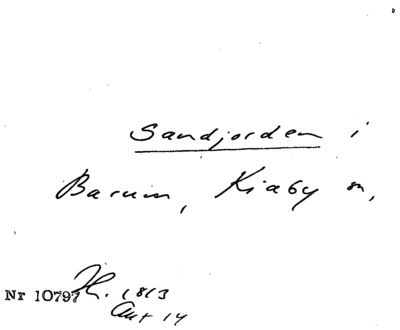 Sandjorden i
Barum, Kiaby sn,
Nr 10797 H. 1813
Akt 14